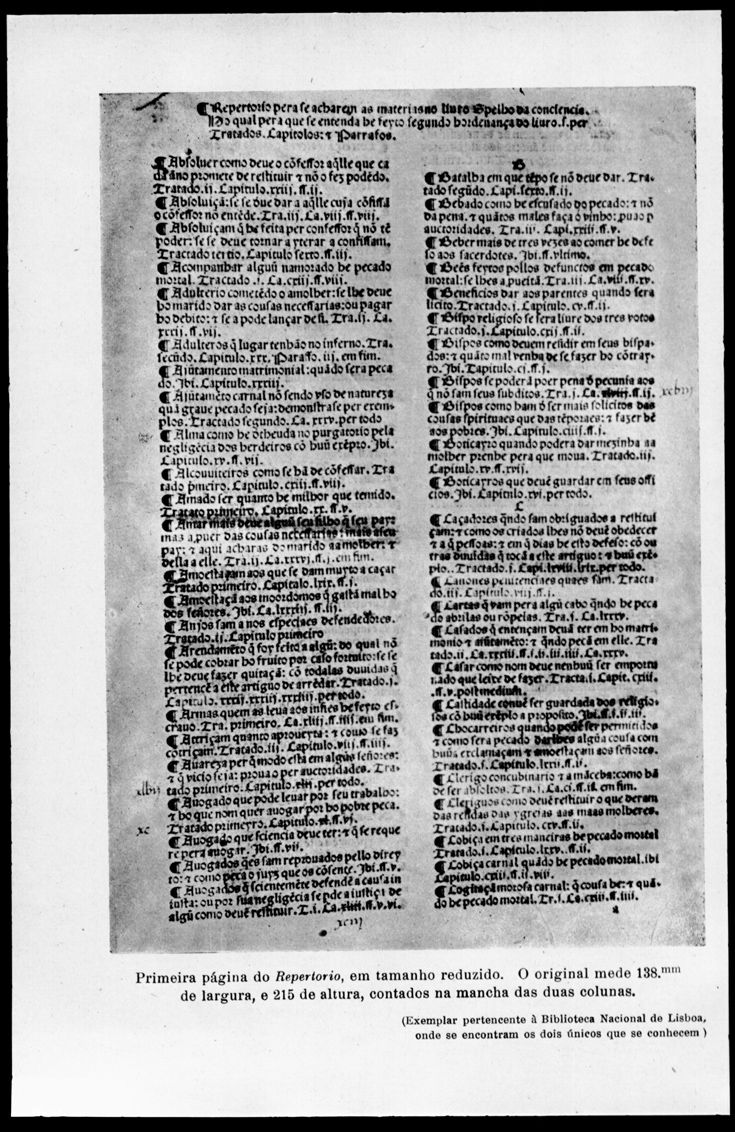 ¶ Repertorio pera se acharem as materias no liuro Spelho da conciencia.
No qual pera que se entenda he feyto segundo hordenança do liuro .s. per
Tratados. Capitolos: ⁊ Parrafos.
¶ Absoluer como deue o cõfessor aq̃lle que ca
da ãno promete de restituir ⁊ nõ o fez podẽdo.
Tratado .ij. Capitulo .xxiij. ff. ij.
¶ Absoluiçã: se se deue dar a aq̃lle cuja cõfissã
o cõfessor nõ entẽde. Tra. iij. Ca. viij. ff. viij.
¶ Absoluiçam q̃ he feita per confessor q̃ nõ tẽ
poder: se se deue tornar a yterar a confissam.
Tractado tertio. Capitulo sexto. ff. iij.
¶ Acompanhar alguũ namorado he pecado
mortal. Tractado .i. Ca. cxiij. ff. viij.
¶ Adulterio cometẽdo o a molher: se lhe deue
ho marido dar as cousas necessarias: ou pagar
ho debito: ⁊ se a pode lançar de si. Tra. ij. Ca.
xxxij. ff. vij.
¶ Adulteros q̃ lugar tenhão no inferno. Tra.
secũdo. Capitulo. xxx. Paraffo. iij. em fim.
¶ Ajũtamento matrimonial: quãdo sera peca
do. Ibi. Capitulo. xxxiij.
¶ Ajũtamẽto carnal nõ sendo vso de natureza
quã graue pecado seja: demonstrase per exem-
plos. Tractado segundo. Ca. xxxv. per todo
¶ Alma como he detheuda no purgatorio pela
negligẽcia dos herdeiros cõ huũ exẽplo. Ibi.
Capitulo. xv. ff. vij.
¶ Alcouuiteiros como se hã de cõfessar. Tra
tado p̃meiro. Capitulo. cxiij. ff. viij.
¶ Amado ser quanto he milhor que temido.
Tratato primeiro. Capitulo. xx. ff. v.
¶ Amar mais deue alguũ seu filho q̃ seu pay:
mas a puer das cousas necessarias: mais a seu
pay: ⁊ aqui acharas do marido aa molher: ⁊
desta a elle. Tra. ij. Ca. xxxvj. ff. j. em fim.
¶ Amoestaçam aos que se dam muyto a caçar
Tratado primeiro. Capitulo. lxix. ff. j.
¶ Amoestaçã aos moordomos q̃ gastã mal ho
dos señores. Ibi. Ca. lxxxiij. ff. iij.
¶ Anjos sam a nos especiaes defendedores.
Tratado. ij. Capitulo primeiro
¶ Arendamẽto q̃ foy feito a algũ: do qual nõ
se pode cobrar ho fruito por caso fortuito: se se
lhe deue fazer quitaçã: cõ todalas duuidas q̃
pertencẽ a este artigoo de arrẽdar. Tratado. j.
Capitulo. xxxij. xxxiij. xxxiiij. per todo.
¶ Armas quem as leua aos infiẽs he feyto es-
crauo. Tra. primeiro. Ca. xliij. ff. iiij. em fim.
¶ Atriçam quanto aproueyta: ⁊ como se faz
contriçam. Tratado. iij. Capitulo. vij. ff. iiij.
¶ Auareza per q̃ modo està em algũs señores:
⁊ q̃ vicio seja: proua o per auctoridades. Tra-
xlviij tado primeiro. Capitulo. per todo.
¶ Auogado que pode leuar por seu trabalho:
⁊ ho que nom quer auogar por ho pobre peca.
xc Tratado primeyro. Capitulo. ff. vj.
¶ Auogado que sciencia deue ter: ⁊ q̃ se reque
re pera auogar. Ibi. ff. vij.
¶ Auogados q̃es sam reprouados pello direy
to: ⁊ como peca o juyz que os cõsente. Ibi. ff. v.
¶ Auogados q̃ scientemẽte defendẽ a causa in
iusta: ou por sua negligẽcia se pde a iustiça de
algũ como deuẽ restituir. T. i. Ca. ff. v. vi.
xciij
B
¶ Batalha em que tẽpo se nõ deue dar. Tra-
tado segũdo. Capi. sexto. ff. ij.
¶ Bebado como he escusado do pecado: ⁊ nõ
da pena. ⁊ quãtos males faça o vinho: proua o p
auctoridades. Tra. iij. Capi. xxiij. ff. v.
¶ Beber mais de tres vezes ao comer he defe
so aos sacerdotes. Ibi. ff. vltimo.
¶ Beẽs feytos pollos defunctos em pecado
mortal: se lhes apueitã. Tra. iij. Ca. viij. ff. xv.
¶ Beneficios dar aos parentes quando sera
licito. Tractado. j. Capitulo. cv. ff. ij.
¶ Bispo religioso se sera liure dos tres votos
Tractado. j. Capitulo. cxij. ff. ij.
¶ Bispos como deuem residir em seus bispa-
dos: ⁊ quãto mal venha de se fazer ho cõtray-
ro. Ibi. Capitulo. cj. ff. j.
¶ Bispos se poderã poer pena d̃ pecunia aos
q̃ nõ sam seus subditos. Tra. j. Ca. ff. ij. xcbiij
¶ Bispos como ham d̃ ser mais solicitos das
cousas spirituaes que das tẽporaes: ⁊ fazer bẽ
aos pobres. Ibi. Capitulo. ciiij. ff. j.
¶ Boticayro quando podera dar mezinha aa
molher prenhe pera que moua. Tratado. iij.
Capitulo. xv. ff. xvij.
¶ Boticayros que deuẽ guardar em seus offi
cios. Ibi. Capitulo. xvi. per todo.
C
¶ Caçadores q̃ndo sam obriguados a restitui
çam: ⁊ como os criados lhes nõ deuẽ obedecer
⁊ a q̃ pessoas: ⁊ em q̃ dias he esto defeso: cõ ou
tras duuidas q̃ tocã a este artiguo: ⁊ huũ exẽ-
plo.. Tractado. j. Capi. lxviij. lxix. per todo.
¶ Canones penitenciaes quaes sam. Tracta
do. iij. Capitulo. viij. ff. j.
¶ Cartas q̃ vam pera algũ cabo q̃ndo he peca
do abrilas ou rõpelas. Tra. j. Ca. lxxxv.
¶ Casados q̃ entençam deuã ter em ho matri-
monio ⁊ ajũtamẽto: ⁊ q̃ndo pecã em elle. Tra
tado. ij. Ca. xxxiij. ff. i. ij. iij. iiij. Ca. xxxv.
¶ Casar como nom deue nenhuũ ser emportu
nado que leixe de fazer. Tracta. i. Capit. cxiij.
ff. v. post medium.
¶ Castidade conuẽ ser guardada dos religio-
sos cõ huũ exẽplo a proposito. Ibi. ff. i. ij. iij.
¶ Chocarreiros quando pode ser permitidos
⁊ como sera pecado darlhes algũa cousa com
huũa exclamaçam ⁊ amoestaçam aos señores.
Tratado. j. Capitulo. lxxj. ff. ij.
¶ Clerigo concubinario ⁊ a mãceba: como hã
de ser absoltos. Tra. i. Ca. cj. ff. ij. em fim.
¶ Cleriguos como deuẽ restituir o que deram
das rẽdas das ygrejas aas maas molheres.
Tratado. i. Capitulo. ccv. ff. ij.
¶ Cobiça em tres maneiras he pecado mortal
Tratado. i. Capitulo. lxxv. ff. ij.
¶ Cobiça carnal quãdo he pecado mortal. ibi
Capitulo. cxij. ff. ij. viij.
¶ Cogitaçã morosa carnal: q̃ cousa he: ⁊ quã-
do he pecado mortal. Tr. i. Ca. cxiij. ff. iiij.
Primeira página do Repertorio, em tamanho reduzido. O original mede 138.mm
de largura, e 215 de altura, contados na mancha das duas colunas.
(Exemplar pertencente à Biblioteca Nacional de Lisboa,
onde se encontram os dois únicos que se conhecem)